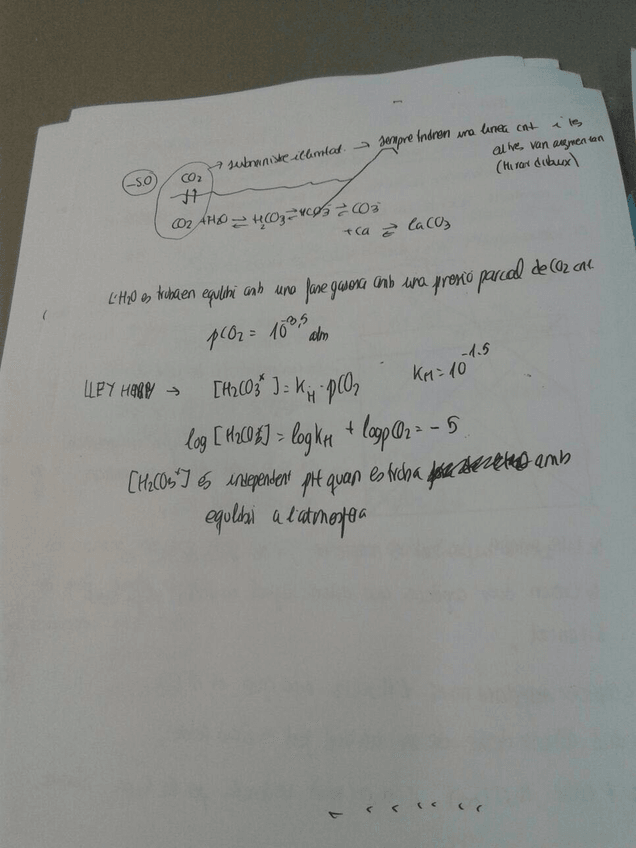 → subministre il·limitat. → sempre tindrem una linea cnt i les
altres van augmentan
(Mirar dibuix)
-5.0
CO2
⇅
CO2 + H2O ⇌ H2CO3 ⇌ HCO3⁻ ⇌ CO3⁻
+ Ca ⇌ CaCO3
L'H2O es troba en equlibi amb una fase gasosa amb una presió parcial de CO2 cnt.
pCO2 = 10^-3,5 atm
LLEY HENRY → [H2CO3*] = KH · pCO2 KH = 10^-1.5
log [H2CO3*] = log KH + log pCO2 = -5
[H2CO3*] és independent pH quan es troba amb
equlibi a l'atmosfera